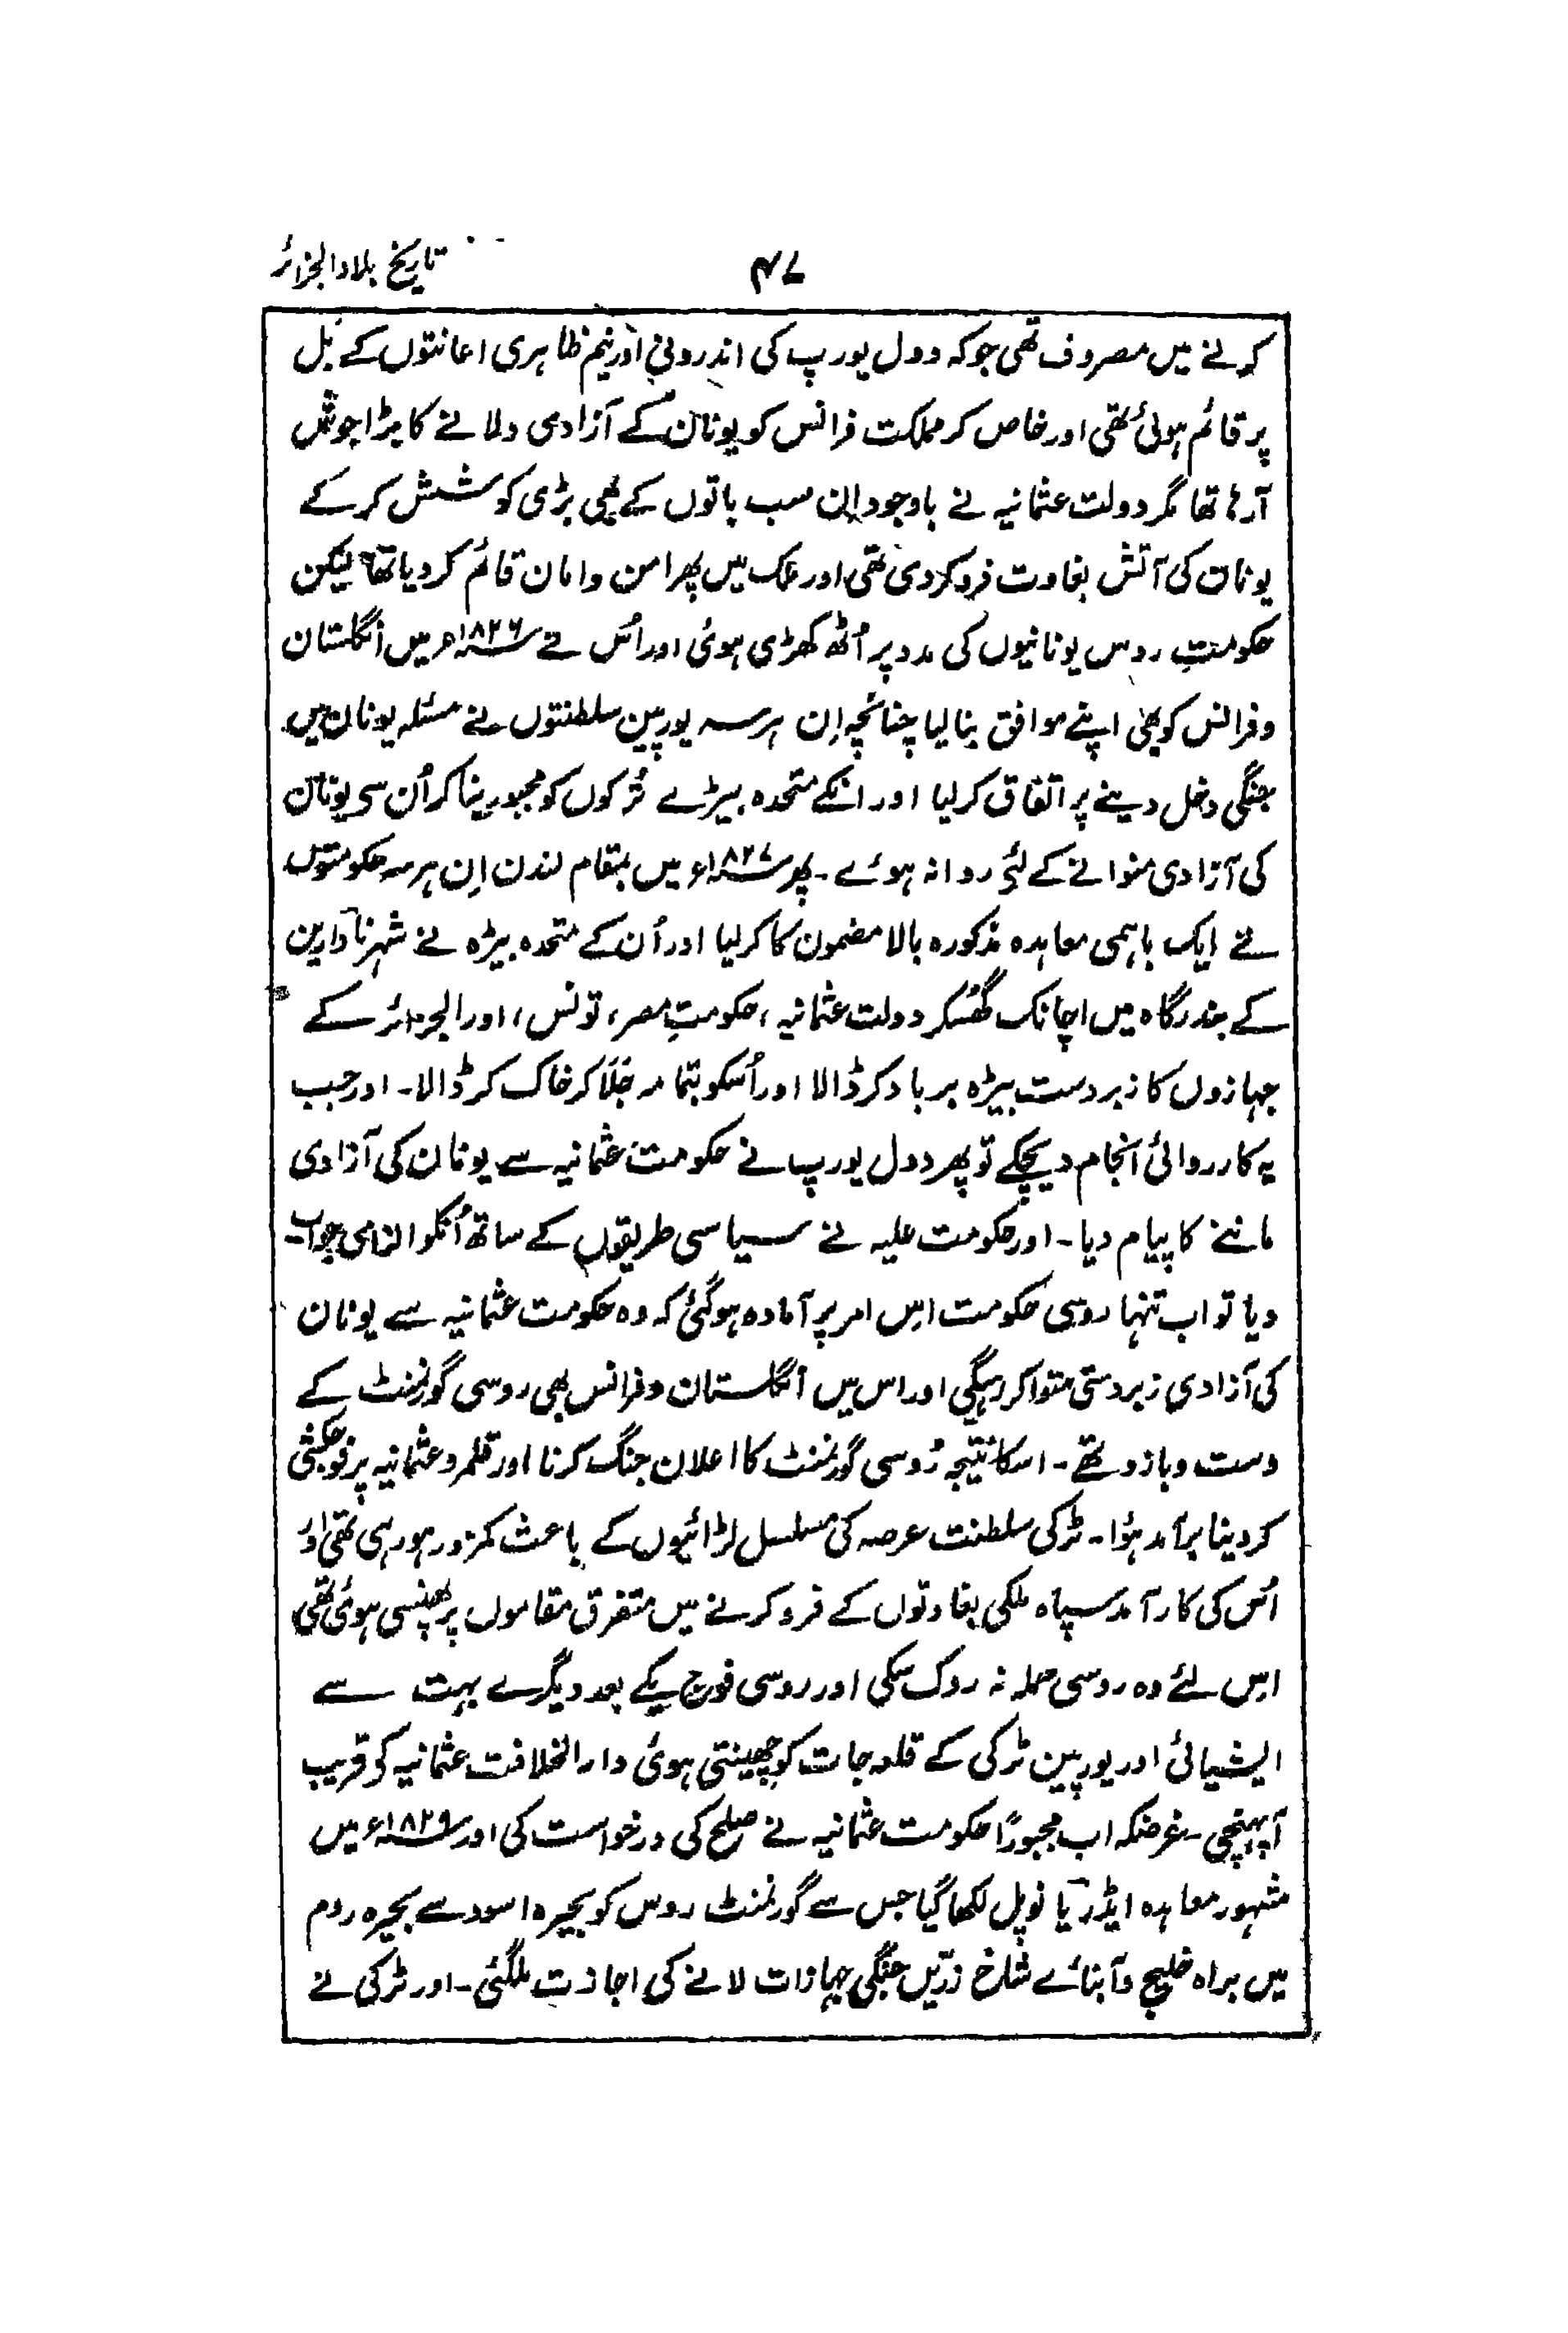 ۴۷
تاریخ بلاد الجزائر
کرنے میں مصروف تھی جو کہ دول یورپ کی اندرونی اور نیم ظاہری اعانتوں کے بل
پر قائم ہوئی تھی اور خاص کر مملکت فرانس کو یونان کے آزادی دلانے کا بڑا جوش
آرہا تھا مگر دولت عثمانیہ نے باوجود اِن سب باتوں کے بھی بڑی کوشش کر کے
یونان کی آتش بغاوت فرو کردی تھی اور ملک میں پھر امن و امان قائم کر دیا تھا لیکن
حکومتِ روس یونانیوں کی مدد پر اُٹھ کھڑی ہوئی اور اُس نے ۱۸۲۶ء میں انگلستان
و فرانس کو بھی اپنے موافق بنا لیا چنانچہ اِن ہر سہ یورپین سلطنتوں نے مسئلہ یونان میں
جنگی دخل دینے پر اتفاق کر لیا اور انکے متحدہ بیڑے تُرکوں کو مجبور بنا کر اُن سی یونان
کی آزادی منوانے کے لئے روانہ ہوئے ۔ پھر ۱۸۲۷ء میں بمقام لندن اِن ہر سہ حکومتوں
نے ایک باہمی معاہدہ مذکورہ بالا مضمون کا کر لیا اور اُن کے متحدہ بیڑہ نے شہر ناوارین
کے بندرگاہ میں اچانک گھُسکر دولت عثمانیہ ، حکومتِ مصر ، تونس ، اور الجزائر کے
جہازوں کا زبردست بیڑہ برباد کر ڈالا اور اُسکو بتمامہ جَلا کر خاک کر ڈالا ۔ اور جب
یہ کارروائی انجام دیچکے تو پھر دول یورپ نے حکومت عثمانیہ سے یونان کی آزادی
ماننے کا پیام دیا ۔ اور حکومت علیہ نے سیاسی طریقوں کے ساتھ اُنکو الزامی جواب
دیا تو اب تنہا روسی حکومت اس امر پر آمادہ ہو گئی کہ وہ حکومت عثمانیہ سے یونان
کی آزادی زبردستی منوا کر رہیگی اور اس میں انگلستان و فرانس بھی روسی گورنمنٹ کے
دست و بازو تھے ۔ اسکا نتیجہ رُوسی گورنمنٹ کا اعلان جنگ کرنا اور قلمرو عثمانیہ پر فوجکشی
کر دینا برآمد ہوُا ۔ ٹرکی سلطنت عرصہ کی مسلسل لڑائیوں کے باعث کمزور ہو رہی تھی اور
اُس کی کارآمد سپاہ ملکی بغاوتوں کے فرو کرنے میں متفرق مقاموں پر پھنسی ہوئی تھی
اس لئے وہ روسی حملہ نہ روک سکی اور روسی فوج یکے بعد دیگرے بہت سے
ایشیائی اور یورپین ٹرکی کے قلعہ جات کو چھینتی ہوئی دار الخلافت عثمانیہ کو قریب
آپہنچی ۔ غرضکہ اب مجبورًا حکومت عثمانیہ نے صلح کی درخواست کی اور ۱۸۲۹ء میں
مشہور معاہدہ ایڈریا نوپل لکھا گیا جس سے گورنمنٹ روس کو بحیرہ اسود سے بحیرہ روم
میں براہ خلیج و آبنائے شاخ زرّیں جنگی جہازات لانے کی اجازت ملگئی ۔ اور ٹرکی نے